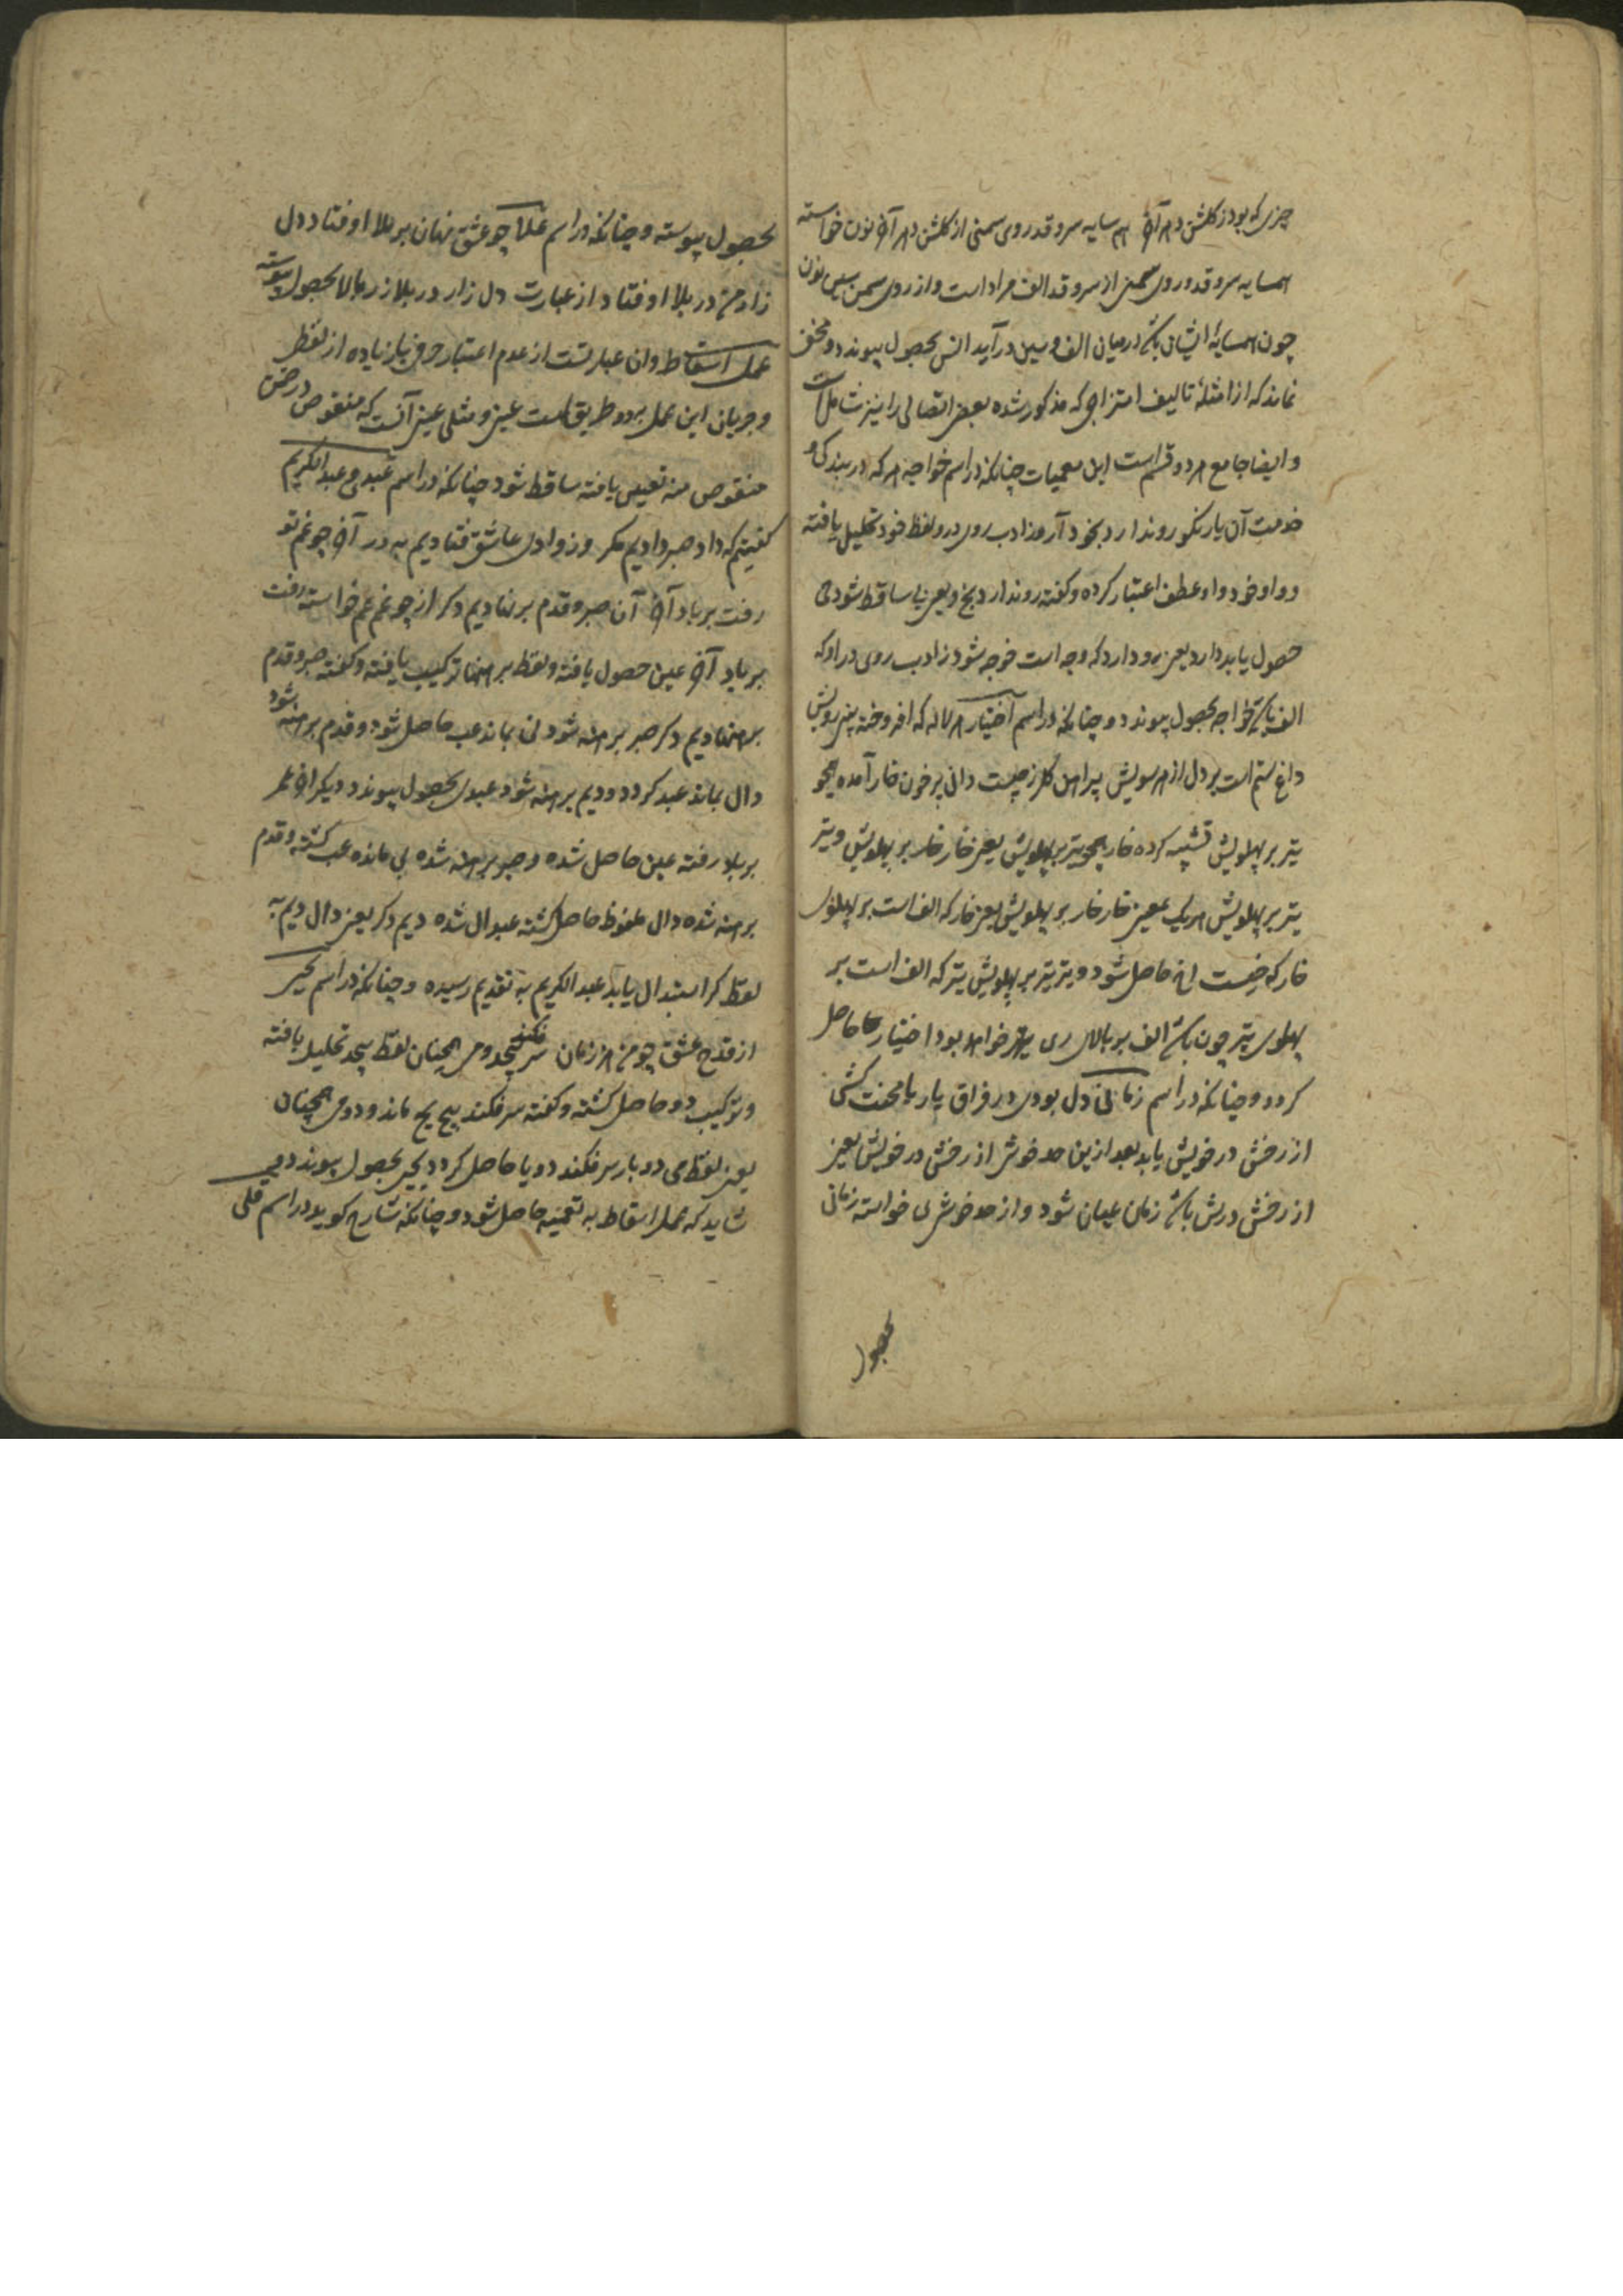 چیزی که بود ز گلشن دهر آخر هم سایه سرو قد و روی سمنی از گلشن دهر آخر نون خواسته
همسایه سرو قد و روی سمنی از سرو قد الف مراد است و از روی سمن سین نون
چون همسایهٔ ایشان باشد در میان الف و سین درآید انس بحصول پیوندد و مخفی
نماند که از امثلهٔ تالیف امتزاجی که مذکور شده بعضی اتصالی را نیز شاملست
و ایضا جامع هر دو قسم است این معمیات چنانکه در اسم خواجه هر که در بندگی و
خدمت آن یار نکو روند ارد بخود آرد ز ادب روی در و لفظ خود تحلیل یافته
و واو خود واو عطف اعتبار کرده و گفته روندارد بخ و یعنی با ساقط شود خ
حصول یابد دارد یعنی رو دارد که وجه است خوجه شود ز ادب روی در او که
الف باشد خواجه بحصول پیوندد و چنانکه در اسم اختیار هر لاله که افروخته بینی رویش
داغ ستم است بر دل از هر سویش پیراهن گل ز چیست دانی پر خون خار آمده همچو
تیر بر پهلویش تشبیه کرده خار همچو تیر بر پهلویش یعنی خار خار بر پهلویش و تیر
تیر بر پهلویش هر یک بمعنی خار خار بر پهلویش یعنی خار که الف است بر پهلوی
خار که خیست اخ حاصل شود و تیر تیر بر پهلویش تیر که الف است بر
پهلوی تیر چون باشد الف بر بالای ری تیر خواهد بود اختیار حاصل
گردد و چنانکه در اسم زمانی دل بودی در فراق یار با محنت کشی
از رخش در خویش یابد بعد ازین صد خوشی از رخش در خویش یعنی
از رخش درش باشد زمان عیان شود و از صد خوشی ی خواسته زمانی
بحصول
بحصول پیوسته و چنانکه در اسم علا چو عشق نهان بر ملا اوفتاد دل
زار من در بلا اوفتاد از عبارت دل زار در بلا زر بالا بحصول پیوسته
عمل اسقاط و ان عبارتست از عدم اعتبار حرفی یا زیاده از لفظ
و جریان این عمل بدو طریق است عینی و مثلی عینی آنست که منقوص در ضمن
منقوص منه تعیین یافته ساقط شود چنانکه در اسم عبدی و عبدالکریم
گفتیم که داد صبر دادیم مگر وز وادی عاشق فتادیم به در آخر چو غم تو
رفت بر باد آخر آن صبر و قدم برهنا دیم دگر از چو غم عم خواسته رفت
بر باد آخر عین حصول یافته و لفظ برهنا ترکیب یافته و گفته صبر و قدم
برهنا دیم دگر صبر برهنه شود بی بماند عب حاصل شود و قدم برهنه شود
دال بماند عبد گردد و دیم برهنه شود عبدی بحصول پیوندد دیگر آخر عمر
بر باد رفته عین حاصل شده و صبر برهنه شده بی مانده عب گشته و قدم
برهنه شده دال ملفوظ حاصل گشته عبدال شده دیم دگر یعنی دال دیم به
لفظ کر استبدال یابد عبدالکریم به تقدیم رسیده و چنانکه در اسم یحیی
از قدح عشق چو من هر زمان سر فکند پیچد و می همچنان لفظ پیچد تحلیل یافته
و ترکیب دو حاصل گشته و گفته سر فکند پیح یح ماند و دو می همچنان
یعنی لفظ می دو بار سر فکند دو یا حاصل گردد یحیی بحصول پیوندد می
شاید که عمل اسقاط به تعمیه حاصل شود و چنانکه شارح گوید در اسم علی